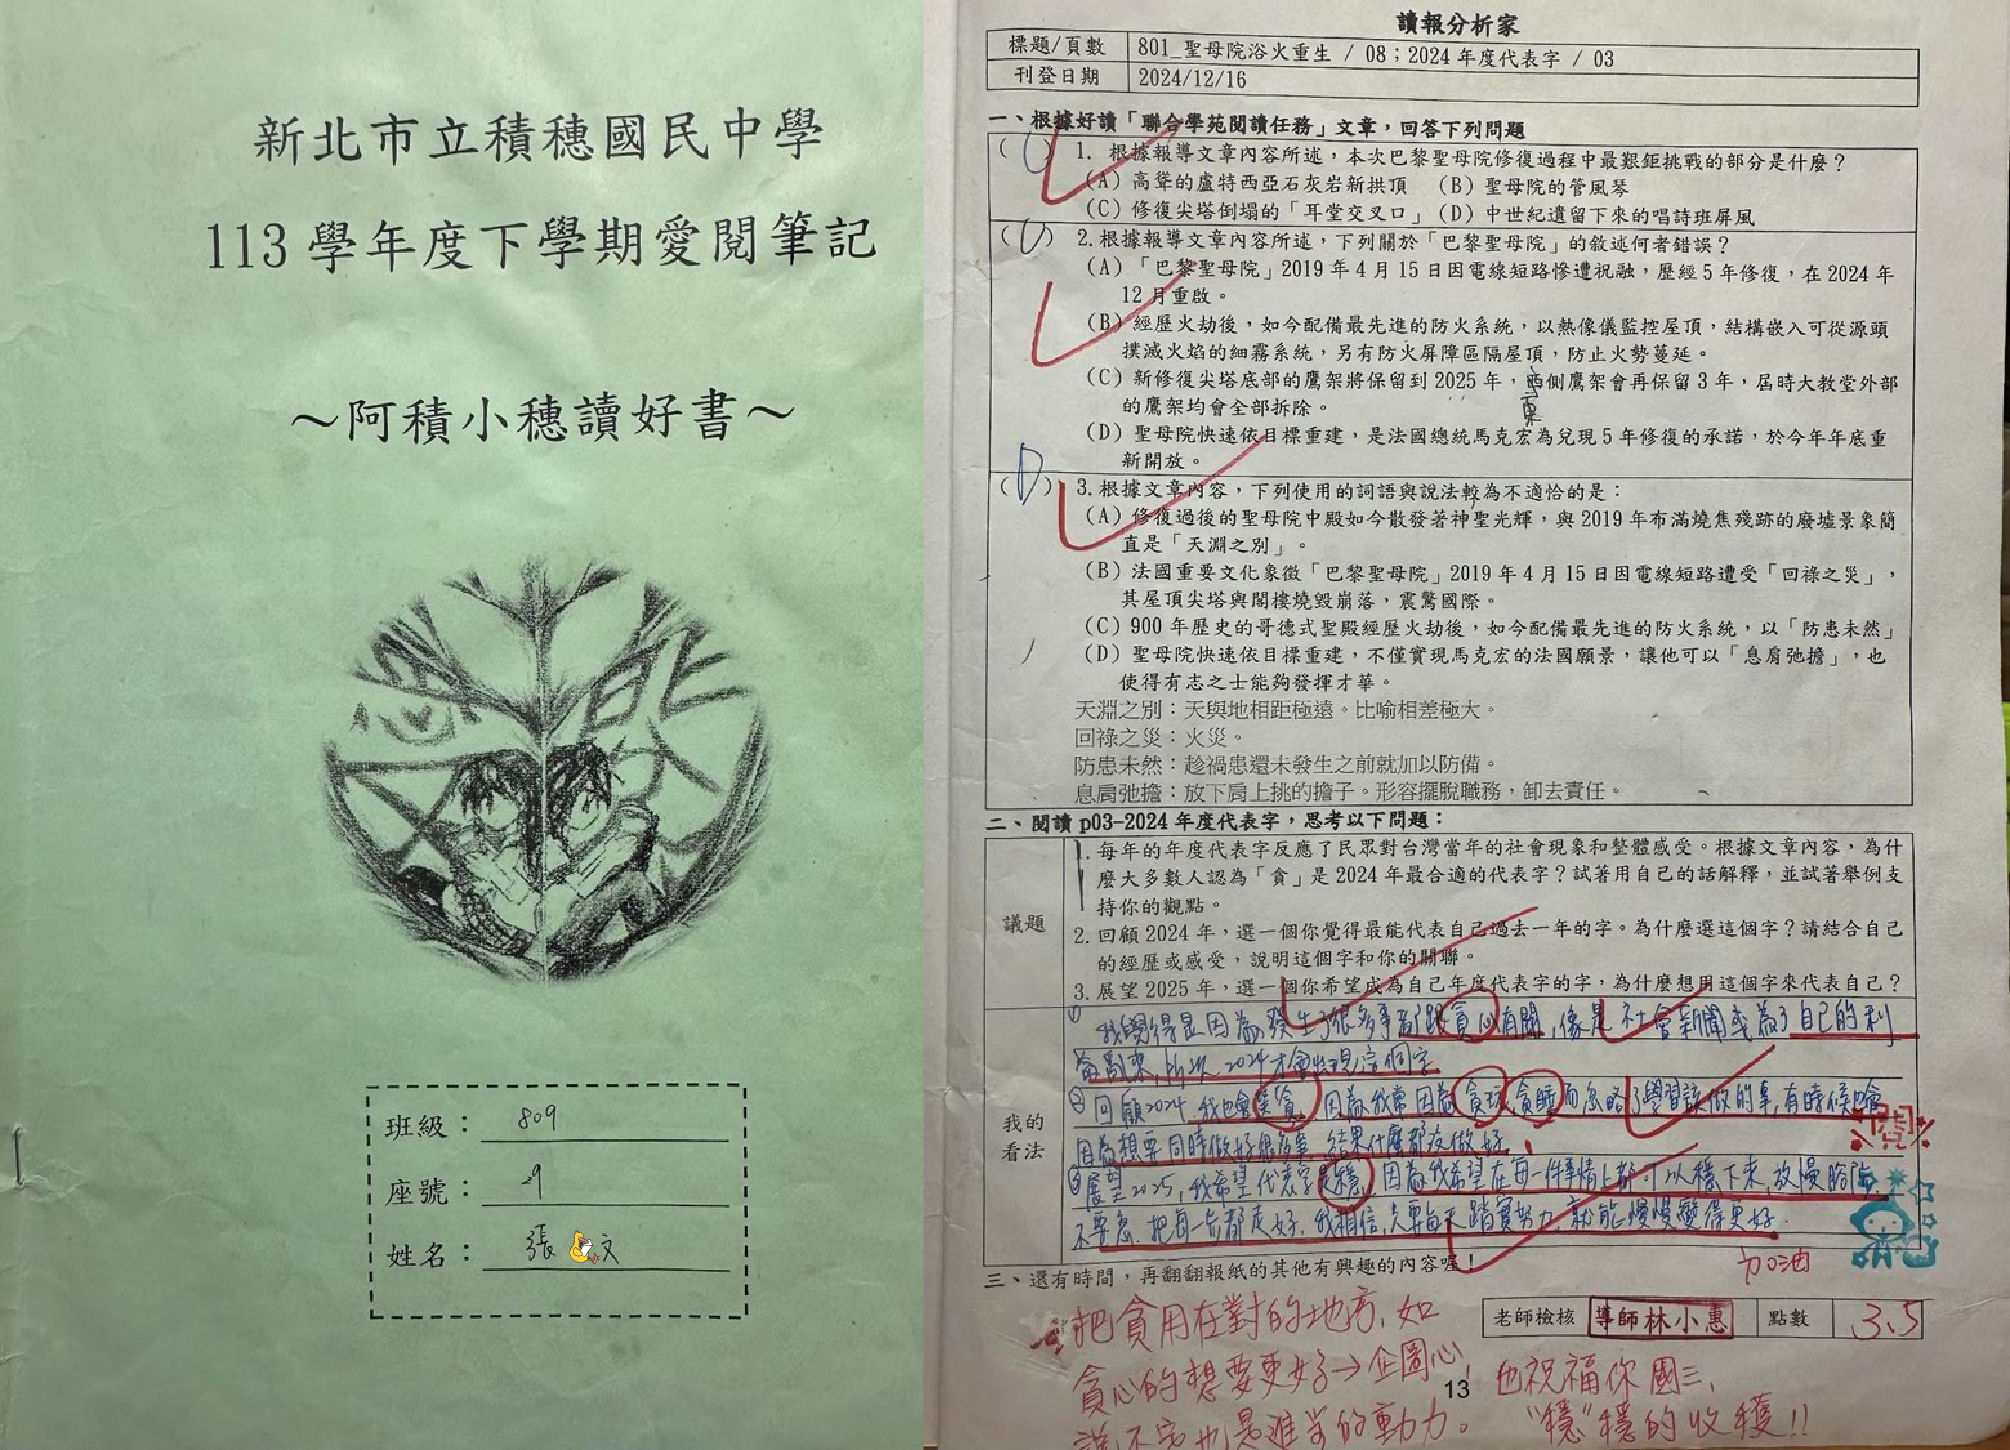 新北市立積穗國民中學
113學年度下學期愛閱筆記
～阿積小穗讀好書～
班級： 809
座號：
姓名： 張 文
讀報分析家
標題/頁數 801_聖母院浴火重生 / 08；2024年度代表字 / 03
刊登日期 2024/12/16
一、根據好讀「聯合學苑閱讀任務」文章，回答下列問題
( C ) 1. 根據報導文章內容所述，本次巴黎聖母院修復過程中最艱鉅挑戰的部分是什麼？
(A) 高聳的盧特西亞石灰岩新拱頂 (B) 聖母院的管風琴
(C) 修復尖塔倒塌的「耳堂交叉口」(D) 中世紀遺留下來的唱詩班屏風
( ) 2.根據報導文章內容所述，下列關於「巴黎聖母院」的敘述何者錯誤？
(A) 「巴黎聖母院」2019年4月15日因電線短路慘遭祝融，歷經5年修復，在2024年
12月重啟。
(B) 經歷火劫後，如今配備最先進的防火系統，以熱像儀監控屋頂，結構嵌入可從源頭
撲滅火焰的細霧系統，另有防火屏障區隔屋頂，防止火勢蔓延。
(C) 新修復尖塔底部的鷹架將保留到2025年，西側鷹架會再保留3年，屆時大教堂外部
東
的鷹架均會全部拆除。
(D) 聖母院快速依目標重建，是法國總統馬克宏為兌現5年修復的承諾，於今年年底重
新開放。
( D ) 3.根據文章內容，下列使用的詞語與說法較為不適恰的是：
(A) 修復過後的聖母院中殿如今散發著神聖光輝，與2019年布滿燒焦殘跡的廢墟景象簡
直是「天淵之別」。
(B) 法國重要文化象徵「巴黎聖母院」2019年4月15日因電線短路遭受「回祿之災」，
其屋頂尖塔與閣樓燒毀崩落，震驚國際。
(C) 900年歷史的哥德式聖殿經歷火劫後，如今配備最先進的防火系統，以「防患未然」
(D) 聖母院快速依目標重建，不僅實現馬克宏的法國願景，讓他可以「息肩弛擔」，也
使得有志之士能夠發揮才華。
天淵之別：天與地相距極遠。比喻相差極大。
回祿之災：火災。
防患未然：趁禍患還未發生之前就加以防備。
息肩弛擔：放下肩上挑的擔子。形容擺脫職務，卸去責任。
二、閱讀p03-2024年度代表字，思考以下問題：
議題
1. 每年的年度代表字反應了民眾對台灣當年的社會現象和整體感受。根據文章內容，為什
麼大多數人認為「貪」是2024年最合適的代表字？試著用自己的話解釋，並試著舉例支
持你的觀點。
2. 回顧2024年，選一個你覺得最能代表自己過去一年的字。為什麼選這個字？請結合自己
的經歷或感受，說明這個字和你的關聯。
3. 展望2025年，選一個你希望成為自己年度代表字的字，為什麼想用這個字來代表自己？
我的
看法
① 我覺得是因為發生了很多事都跟貪心有關，像是社會新聞或為了自己的利
益亂來，所以2024才會出現這個字
② 回顧2024，我也會選貪，因為我常因為貪玩、貪睡而忽略了學習該做的事，有時候也會
因為想要同時做好很多事，結果什麼都沒做好。
③ 展望2025，我希望代表字是穩，因為我希望在每一件事情上都可以穩下來，放慢腳步，
不要急，把每一步都走好，我相信，只要每天踏實努力，就能慢慢變得更好。
閱
加油
三、還有時間，再翻翻報紙的其他有興趣的內容喔！
老師檢核 導師林小惠 點數 3.5
把貪用在對的地方，如
貪心的想要更好→企圖心，
說不定也是進步的動力。
13
也祝福你國三，
“穩”穩的收穫!!